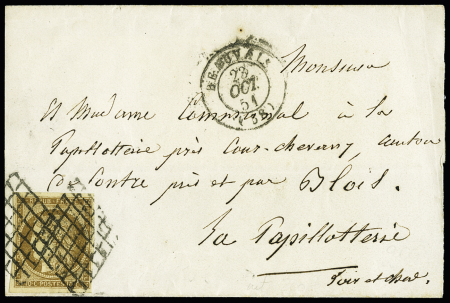 BEAUVAIS
23
OCT.
51
(58)
Monsieur
et Madame Communal à la
Papillotterie près Cour-cheverny, canton
de Contre près et par Blois.
La Papillotterie
Loir et cher
10 C. POSTES 10 C.